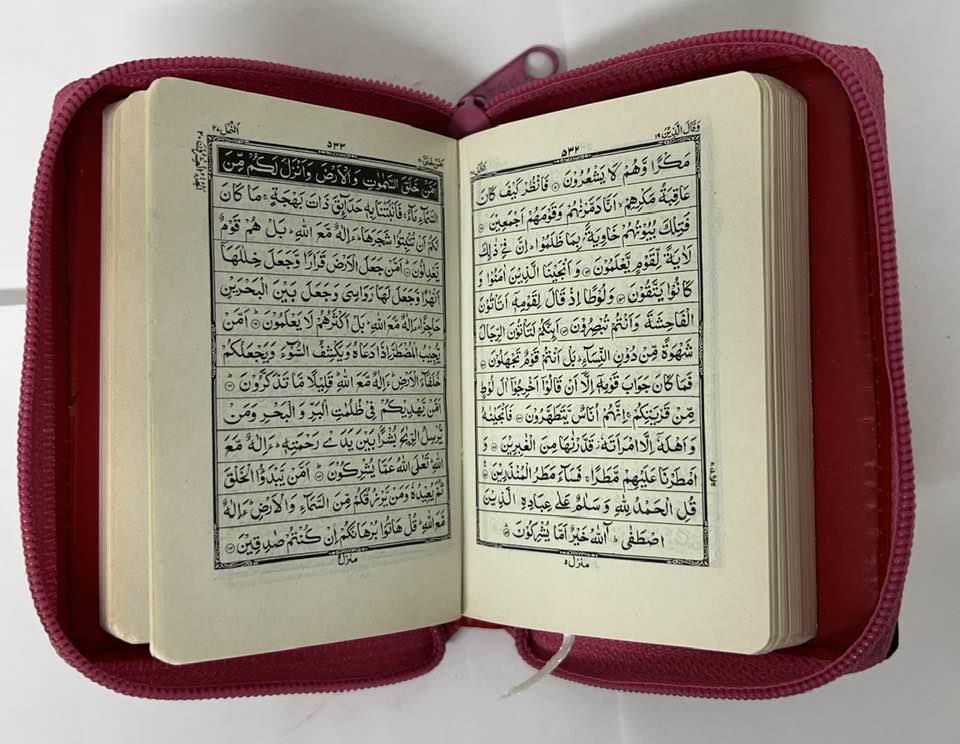 وَقَالَ الَّذِيْنَ ١٩
٥٣٢
النَّمْل ٢٧
مَكْرًا وَّهُمْ لَا يَشْعُرُوْنَ ۝ فَانْظُرْ كَيْفَ كَانَ
عَاقِبَةُ مَكْرِهِمْ ۙ اَنَّا دَمَّرْنٰهُمْ وَقَوْمَهُمْ اَجْمَعِيْنَ ۝
فَتِلْكَ بُيُوْتُهُمْ خَاوِيَةًۢ بِمَا ظَلَمُوْا ؕ اِنَّ فِيْ ذٰلِكَ
لَاٰيَةً لِّقَوْمٍ يَّعْلَمُوْنَ ۝ وَاَنْجَيْنَا الَّذِيْنَ اٰمَنُوْا وَ
كَانُوْا يَتَّقُوْنَ ۝ وَلُوْطًا اِذْ قَالَ لِقَوْمِهٖۤ اَتَاْتُوْنَ
الْفَاحِشَةَ وَاَنْتُمْ تُبْصِرُوْنَ ۝ اَئِنَّكُمْ لَتَاْتُوْنَ الرِّجَالَ
شَهْوَةً مِّنْ دُوْنِ النِّسَآءِ ؕ بَلْ اَنْتُمْ قَوْمٌ تَجْهَلُوْنَ ۝
فَمَا كَانَ جَوَابَ قَوْمِهٖۤ اِلَّاۤ اَنْ قَالُوْۤا اَخْرِجُوْۤا اٰلَ لُوْطٍ
مِّنْ قَرْيَتِكُمْ ۚ اِنَّهُمْ اُنَاسٌ يَّتَطَهَّرُوْنَ ۝ فَاَنْجَيْنٰهُ
وَاَهْلَهٗۤ اِلَّا امْرَاَتَهٗ ؗ قَدَّرْنٰهَا مِنَ الْغٰبِرِيْنَ ۝ وَ
اَمْطَرْنَا عَلَيْهِمْ مَّطَرًا ۚ فَسَآءَ مَطَرُ الْمُنْذَرِيْنَ ۝
قُلِ الْحَمْدُ لِلّٰهِ وَسَلٰمٌ عَلٰى عِبَادِهِ الَّذِيْنَ
اصْطَفٰى ؕ آٰللّٰهُ خَيْرٌ اَمَّا يُشْرِكُوْنَ ۝
منزل ٥
اَمَّنْ خَلَقَ ٢٠
٥٣٣
النَّمْل ٢٧
اَمَّنْ خَلَقَ السَّمٰوٰتِ وَالْاَرْضَ وَاَنْزَلَ لَكُمْ مِّنَ
السَّمَآءِ مَآءً ۚ فَاَنْۢبَتْنَا بِهٖ حَدَآئِقَ ذَاتَ بَهْجَةٍ ۚ مَا كَانَ
لَكُمْ اَنْ تُنْۢبِتُوْا شَجَرَهَا ؕ ءَاِلٰهٌ مَّعَ اللّٰهِ ؕ بَلْ هُمْ قَوْمٌ
يَّعْدِلُوْنَ ۝ اَمَّنْ جَعَلَ الْاَرْضَ قَرَارًا وَّجَعَلَ خِلٰلَهَاۤ
اَنْهٰرًا وَّجَعَلَ لَهَا رَوَاسِيَ وَجَعَلَ بَيْنَ الْبَحْرَيْنِ
حَاجِزًا ؕ ءَاِلٰهٌ مَّعَ اللّٰهِ ؕ بَلْ اَكْثَرُهُمْ لَا يَعْلَمُوْنَ ۝ اَمَّنْ
يُّجِيْبُ الْمُضْطَرَّ اِذَا دَعَاهُ وَيَكْشِفُ السُّوْٓءَ وَيَجْعَلُكُمْ
خُلَفَآءَ الْاَرْضِ ؕ ءَاِلٰهٌ مَّعَ اللّٰهِ ؕ قَلِيْلًا مَّا تَذَكَّرُوْنَ ۝
اَمَّنْ يَّهْدِيْكُمْ فِيْ ظُلُمٰتِ الْبَرِّ وَالْبَحْرِ وَمَنْ
يُّرْسِلُ الرِّيٰحَ بُشْرًۢا بَيْنَ يَدَيْ رَحْمَتِهٖ ؕ ءَاِلٰهٌ مَّعَ
اللّٰهِ ؕ تَعٰلَى اللّٰهُ عَمَّا يُشْرِكُوْنَ ۝ اَمَّنْ يَّبْدَؤُا الْخَلْقَ
ثُمَّ يُعِيْدُهٗ وَمَنْ يَّرْزُقُكُمْ مِّنَ السَّمَآءِ وَالْاَرْضِ ؕ ءَاِلٰهٌ
مَّعَ اللّٰهِ ؕ قُلْ هَاتُوْا بُرْهَانَكُمْ اِنْ كُنْتُمْ صٰدِقِيْنَ ۝
منزل ٥